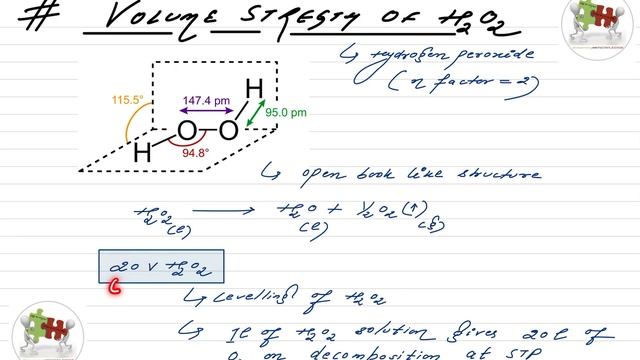 # VOLUME STREGTH OF H2O2
↳ Hydrogen peroxide
(n factor = 2)
115.5°
147.4 pm
H
95.0 pm
O—O
H
94.8°
↳ open book like structure
H2O2 (l) ⟶ H2O (l) + 1/2 O2 (↑) (g)
20 V H2O2
↳ Levelling of H2O2
↳ 1l of H2O2 solution gives 20l of
O2 on decomposition at STP